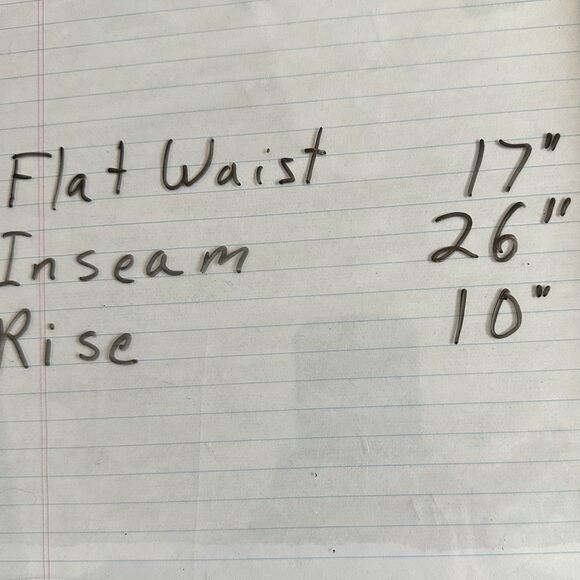 Flat Waist 17"
Inseam 26"
Rise 10"